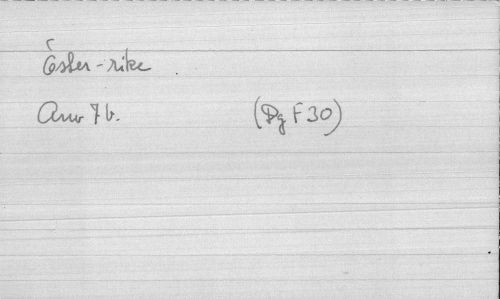 Öster-rike
Anv 7b. (Dg F 30)